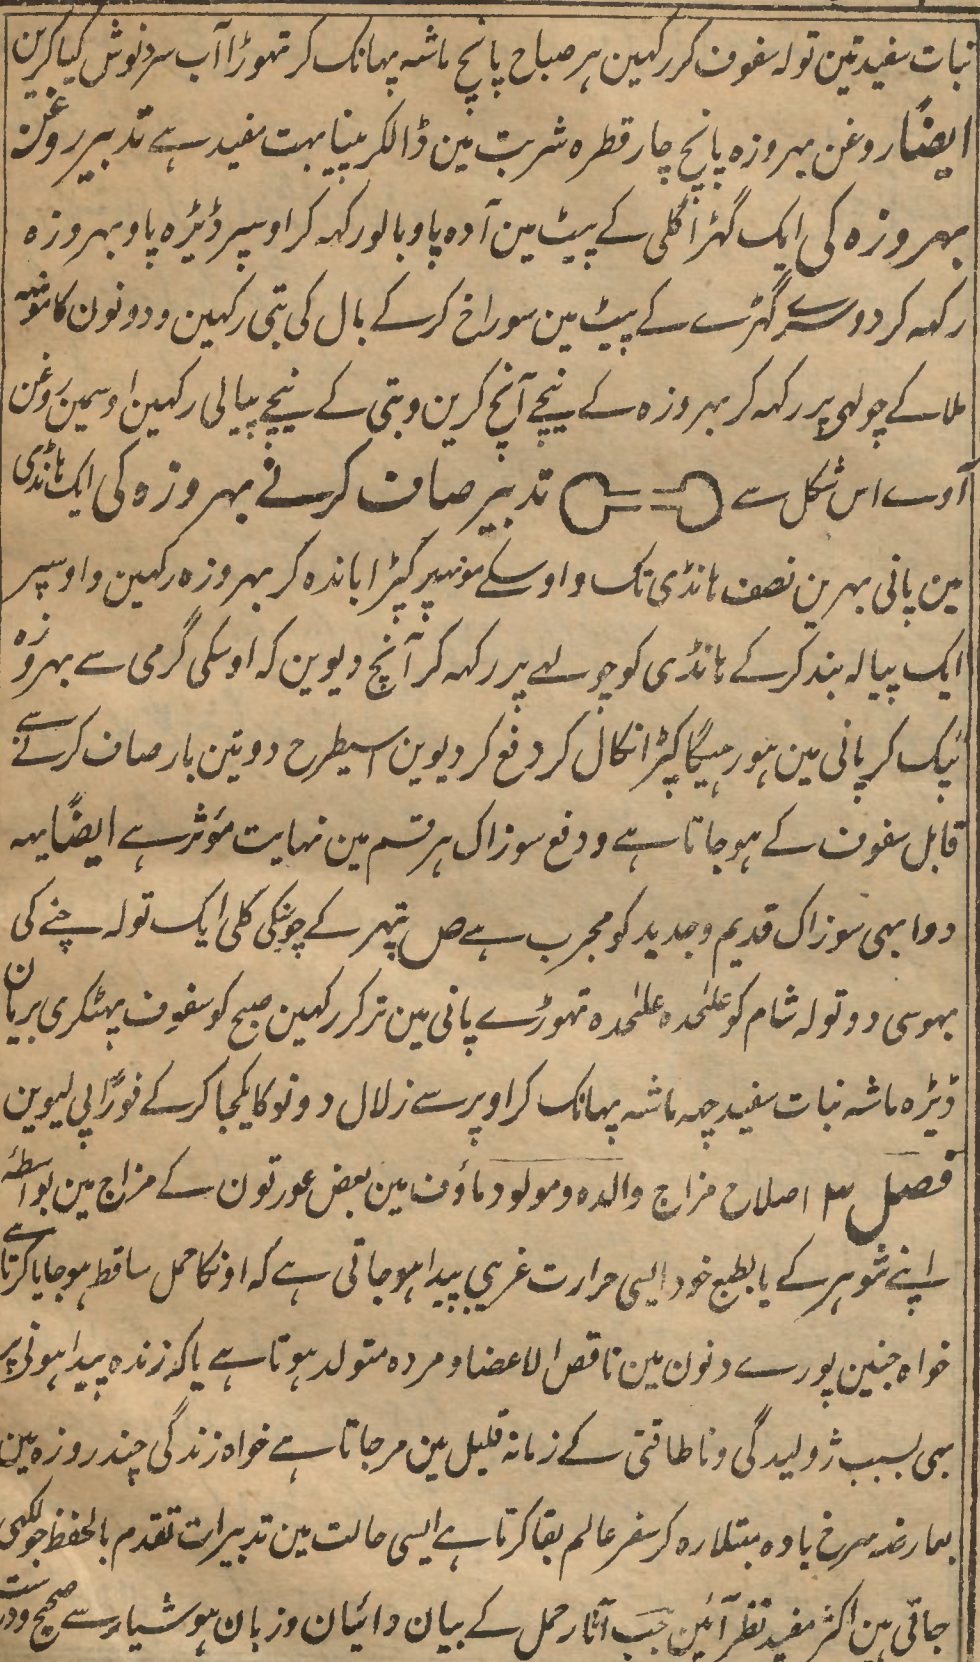 نبات سفید تین تولہ سفوف کر رکہین ہر صباح پانچ ماشہ پہانک کر تہوڑا آب سرد نوش کیا کرین
ایضاً روغن بہروزہ پانچ چار قطرہ شربت مین ڈالکر پینا بہت مفید ہے تدبیر روغن
بہروزہ کی ایک گہڑا گلی کے پیٹ مین آدہ پاو بالو رکہہ کر اوسپر ڈیڑہ پاو بہروزہ
رکہہ کر دوسرے گہڑے کے پیٹ مین سوراخ کرکے بال کی بتی رکہین و دونون کا مونہہ
ملا کے چولہی پر رکہہ کر بہروزہ کے نیچے آنچ کرین و بتی کے نیچے پیالی رکہین اوسمین روغن
آوے اس شکل سے تدبیر صاف کرنے بہروزہ کی ایک ہانڈی
مین پانی بہرین نصف ہانڈی تک و اوسکے مونہہ پر کپڑا باندہ کر بہروزہ رکہین و اوسپر
ایک پیالہ بند کرکے ہانڈی کو چولہے پر رکہہ کر آنچ دیوین کہ اوسکی گرمی سے بہروزہ
ٹپک کر پانی مین ہو رہیگا کپڑا نکال کر دفع کر دیوین اسیطرح دو تین بار صاف کرنے سے
قابل سفوف کے ہو جاتا ہے و دفع سوزاک ہر قسم مین نہایت مؤثر ہے ایضاً یہہ
دوا بہی سوزاک قدیم و جدید کو مجرب ہے ص پتہر کے چونیکی کلی ایک تولہ چنے کی
بہوسی دو تولہ شام کو علٰحدہ علٰحدہ تہوڑے پانی مین تر کر رکہین صبح کو سفوف پہٹکری بریان
ڈیڑہ ماشہ نبات سفید چہہ ماشہ پہانک کر اوپر سے زلال دونو کا یکجا کرکے فوراً پی لیوین
فصل ۳ اصلاح مزاج والدہ و مولود ماؤف مین بعض عورتون کے مزاج مین بواسطۂ
اپنے شوہر کے یا بطبع خود ایسی حرارت غریبی پیدا ہو جاتی ہے کہ اونکا حمل ساقط ہو جایا کرتا ہے
خواہ جنین پورے دنون مین ناقص الاعضا و مردہ متولد ہوتا ہے یا کہ زندہ پیدا ہونی پر
بہی بسبب ژولیدگی و ناطاقتی کے زمانہ قلیل مین مر جاتا ہے خواہ زندگی چند روزہ مین
بعارضہ سرخ بادہ مبتلا رہ کر سفر عالم بقا کرتا ہے ایسی حالت مین تدبیرات تقدم بالحفظ جو لکہی
جاتی ہین اکثر مفید نظر آئین جب آثار حمل کے بیان دائیان و زبان ہوشیار سے صحیح و درست